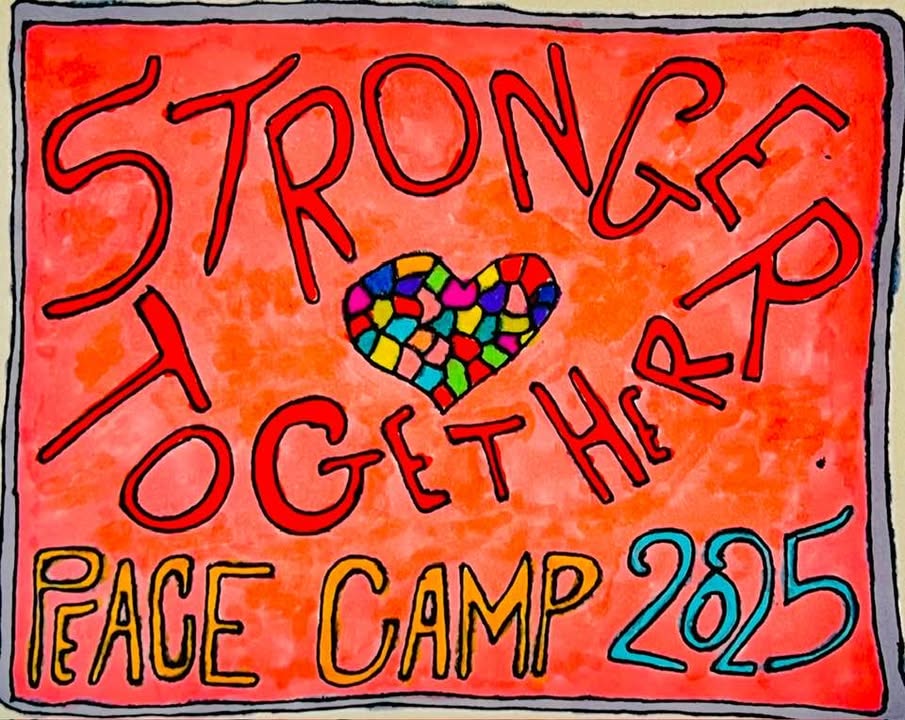 STRONGER
TOGETHER
PEACE CAMP 2025